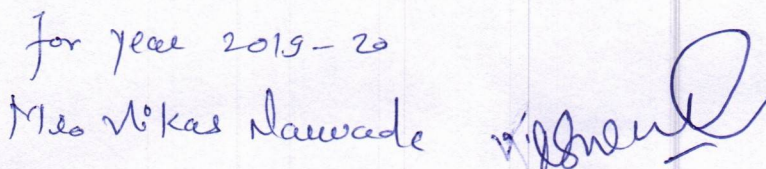 for year 2019-20
Vikas Nawade